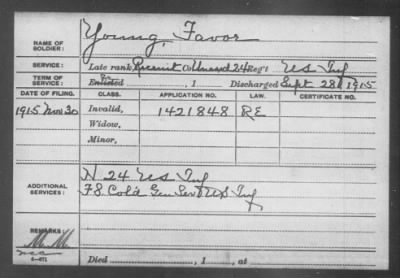 NAME OF SOLDIER: Young, Favor
SERVICE: Late rank Recruit Co Unasd 24 Reg't US Inf
TERM OF SERVICE: Enlisted , 1 Discharged Sept 28, 1915
DATE OF FILING. CLASS. APPLICATION NO. LAW. CERTIFICATE NO.
1915 Nov 30 Invalid, 1421848 RE
Widow,
Minor,
ADDITIONAL SERVICES: H 24 US Inf
F 8 Col'd Gen Serv US Inf
REMARKS:
Died , 1 , at